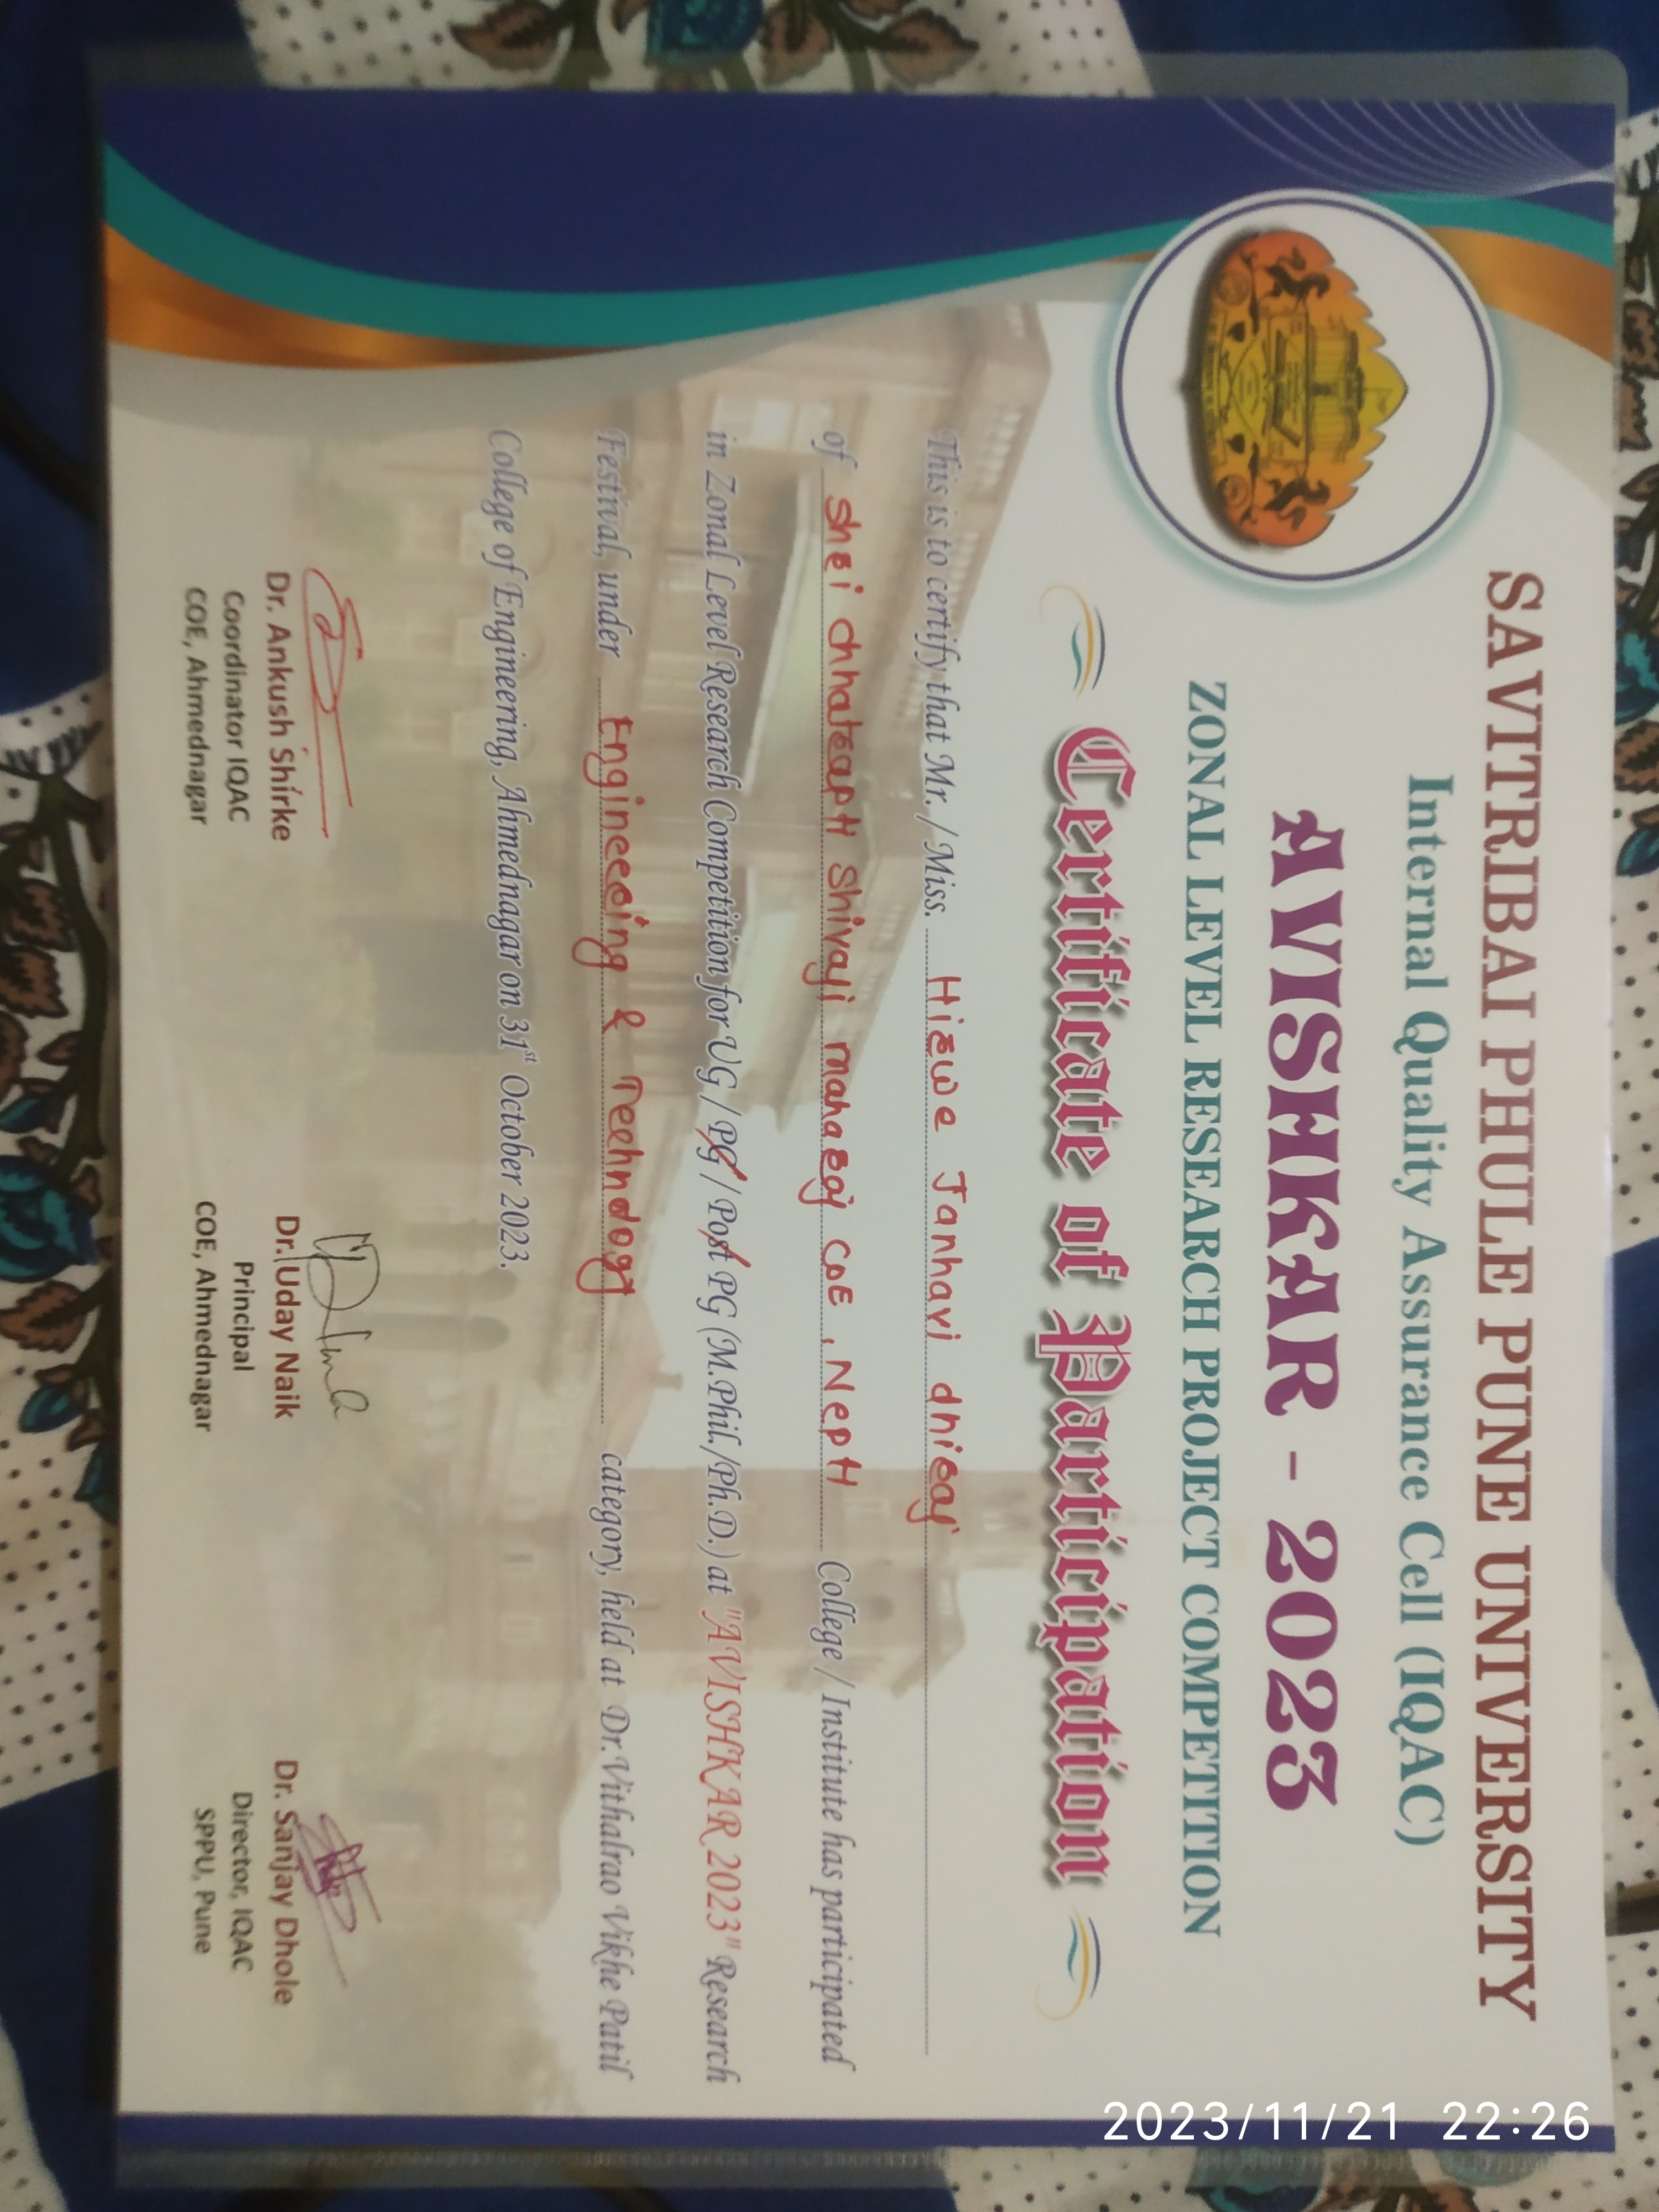 SAVITRIBAI PHULE PUNE UNIVERSITY
Internal Quality Assurance Cell (IQAC)
AVISHKAR - 2023
ZONAL LEVEL RESEARCH PROJECT COMPETITION
Certificate of Participation
This is to certify that Mr. / Miss. Hirwe Janhavi dhiraj
of Shri chhatrapti Shivaji maharaj COE, Nepti College / Institute has participated
in Zonal Level Research Competition for UG / PG / Post PG (M.Phil./Ph.D.) at "AVISHKAR 2023" Research
Festival, under Engineering & Technology category, held at Dr.Vithalrao Vikhe Patil
College of Engineering, Ahmednagar on 31st October 2023.
Dr. Ankush Shirke
Coordinator IQAC
COE, Ahmednagar
Dr. Uday Naik
Principal
COE, Ahmednagar
Dr. Sanjay Dhole
Director, IQAC
SPPU, Pune
2023/11/21 22:26